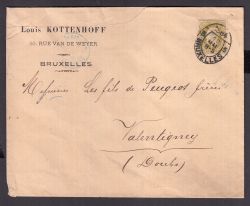 Louis KOTTENHOFF
RUE VAN DE WEYER
BRUXELLES
Messieurs Les fils de Peugeot frères
Valentigney
(Doubs)
BRUXELLES